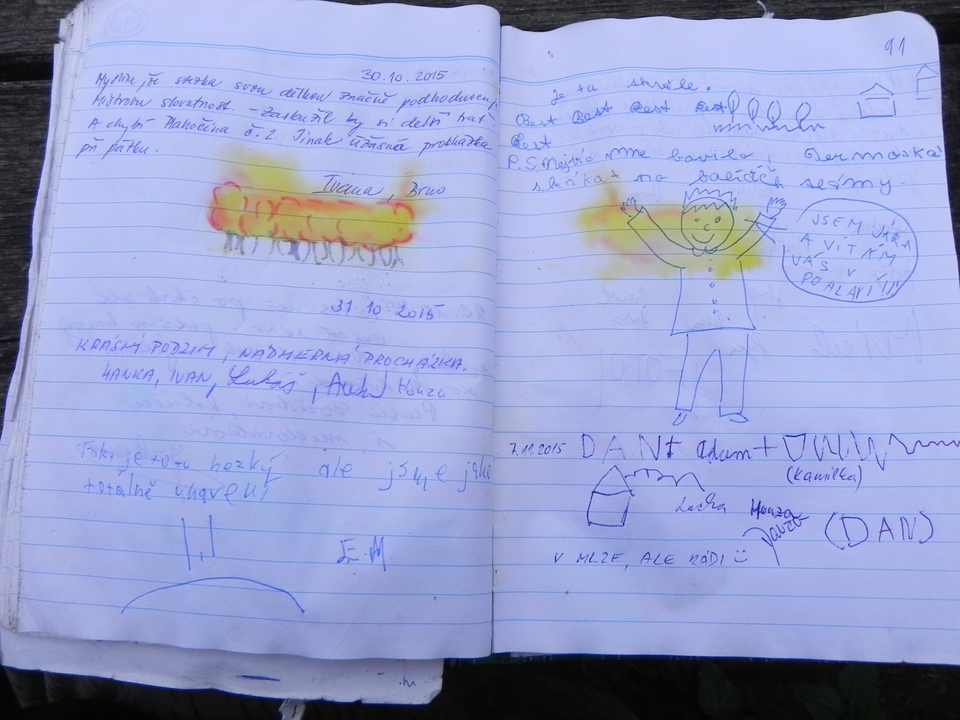 30.10.2015
Myslím, že stezka svou délkou značně podhodnocuje
Mistrovu slovutnost. - Zasloužil by si delší trať.
A chybí Plahočina č. 2. Jinak úžasná procházka
při pátku.
Ivana, Brno
31.10 2015
KRÁSNÝ PODZIM, NÁDHERNÁ PROCHÁZKA.
HANKA, IVAN, Lukáš, Honza
Fakt je to tu hezký ale jsme jaksi
totálně unavení
E.M.
91
Je tu skvěle.
Best Best Best Best
Best
P.S. Nejvíc mne bavila,
na sezamy.
JSEM JÁRA
A VÍTÁM
VÁS V
POHLAVÍ!!!
7.11.2015 DAN + Adam +
(Kamilka)
Lucka Honza
(DAN)
V MLZE, ALE RÁDI